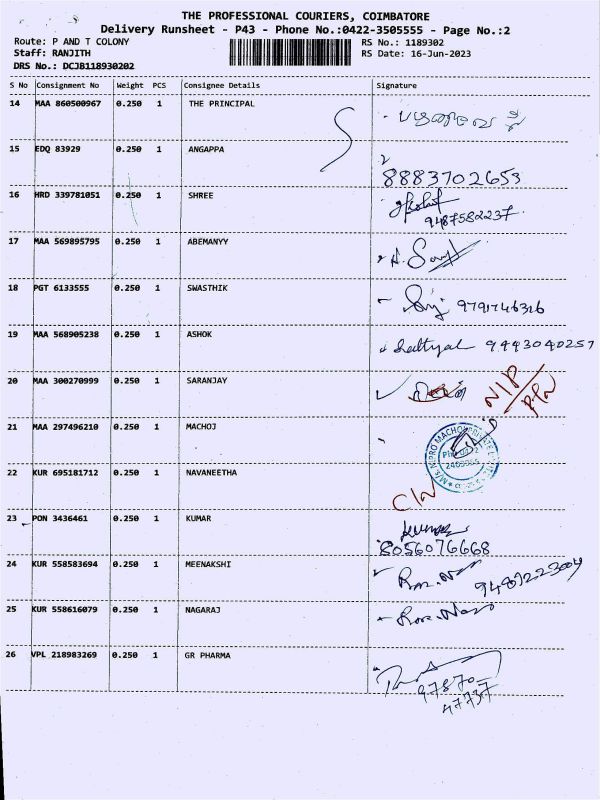 THE PROFESSIONAL COURIERS, COIMBATORE
Delivery Runsheet - P43 - Phone No.:0422-3505555 - Page No.:2
Route: P AND T COLONY RS No.: 1189302
Staff: RANJITH RS Date: 16-Jun-2023
DRS No.: DCJB118930202
S No Consignment No Weight PCS Consignee Details Signature
14 MAA 860500967 0.250 1 THE PRINCIPAL
15 EDQ 83929 0.250 1 ANGAPPA
8883702653
16 HRD 339781051 0.250 1 SHREE
9487582237
17 MAA 569895795 0.250 1 ABEMANYY
18 PGT 6133555 0.250 1 SWASTHIK
9791746326
19 MAA 568905238 0.250 1 ASHOK
9443040257
20 MAA 300270999 0.250 1 SARANJAY
N/P
21 MAA 297496210 0.250 1 MACHOJ
22 KUR 695181712 0.250 1 NAVANEETHA
23 PON 3436461 0.250 1 KUMAR
8056076668
24 KUR 558583694 0.250 1 MEENAKSHI
25 KUR 558616079 0.250 1 NAGARAJ
26 VPL 218983269 0.250 1 GR PHARMA
97870-
47737